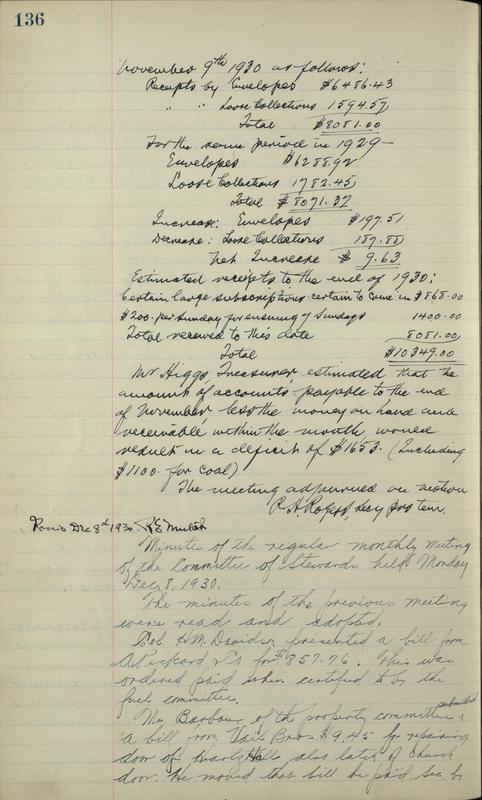 136
November 9th 1930 as follows:
Receipts by Envelopes $6486.43
" " Loose Collections 1594.57
Total $8081.00
For the same period in 1929-
Envelopes $6288.92
Loose Collections 1782.45
Total $8071.37
Increase: Envelopes $197.51
Decrease: Loose Collections 187.88
Net Increase $ 9.63
Estimated receipts to the end of 1930:
Certain large subscriptions certain to come in $868.00
$200. per Sunday for ensuing 7 Sundays 1400.00
Total received to this date 8081.00
Total $10349.00
Mr Higgs, Treasurer, estimated that the
amount of accounts payable to the end
of November less the money on hand and
receivable within the month would
result in a deficit of $1653. (Including
$1100. for coal)
The meeting adjourned on motion
R. A. Rogers, Secy pro tem.
Dec 8th 1930.
Minutes of the regular monthly meeting
of the Committee of Stewards held Monday
Dec 8, 1930.
The minutes of the previous meeting
were read and adopted.
Col. H.M. Davidson presented a bill from
A Rickard & Co for $857.76. This was
ordered paid when certified to by the
fuel committee.
Mr. Barbour of the property committee submitted
a bill from Bros $9.45 for repairing
door of Hall also of church
door. He moved that bill be paid. Sec by